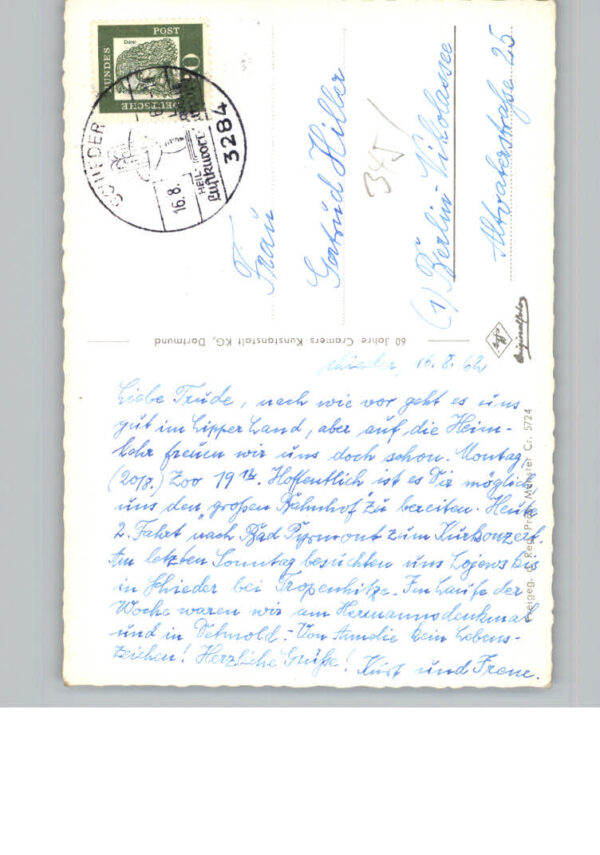 Schieder, 16.8.62
Liebe Trude, nach wie vor geht es uns
gut im Lipper Land, aber auf die Heim-
kehr freuen wir uns doch schon. Montag,
(20/8.) Zoo 19 14. Hoffentlich ist es Dir möglich,
uns den "großen Bahnhof" zu bereiten. Heute
2. Fahrt nach Bad Pyrmont zum Kurkonzert.
Am letzten Sonntag besuchten uns
in Schieder bei Tropenhitze. Im Laufe der
Woche waren wir am Hermannsdenkmal
und in Detmold. - Von Amelie kein Lebens-
zeichen! Herzliche Grüße! Kurt und Irene.
Frau
Gertrud Hiller
(1) Berlin-Nikolassee
Altvaterstraße 25
345/
DEUTSCHE BUNDESPOST
10
SCHIEDER
16.8.
HEIL
Luftkurort
3284
60 Jahre Cramers Kunstanstalt KG, Dortmund
Agfa
Originalfoto
Freigeg. d. Reg. Präs. Münster Cr. 5724